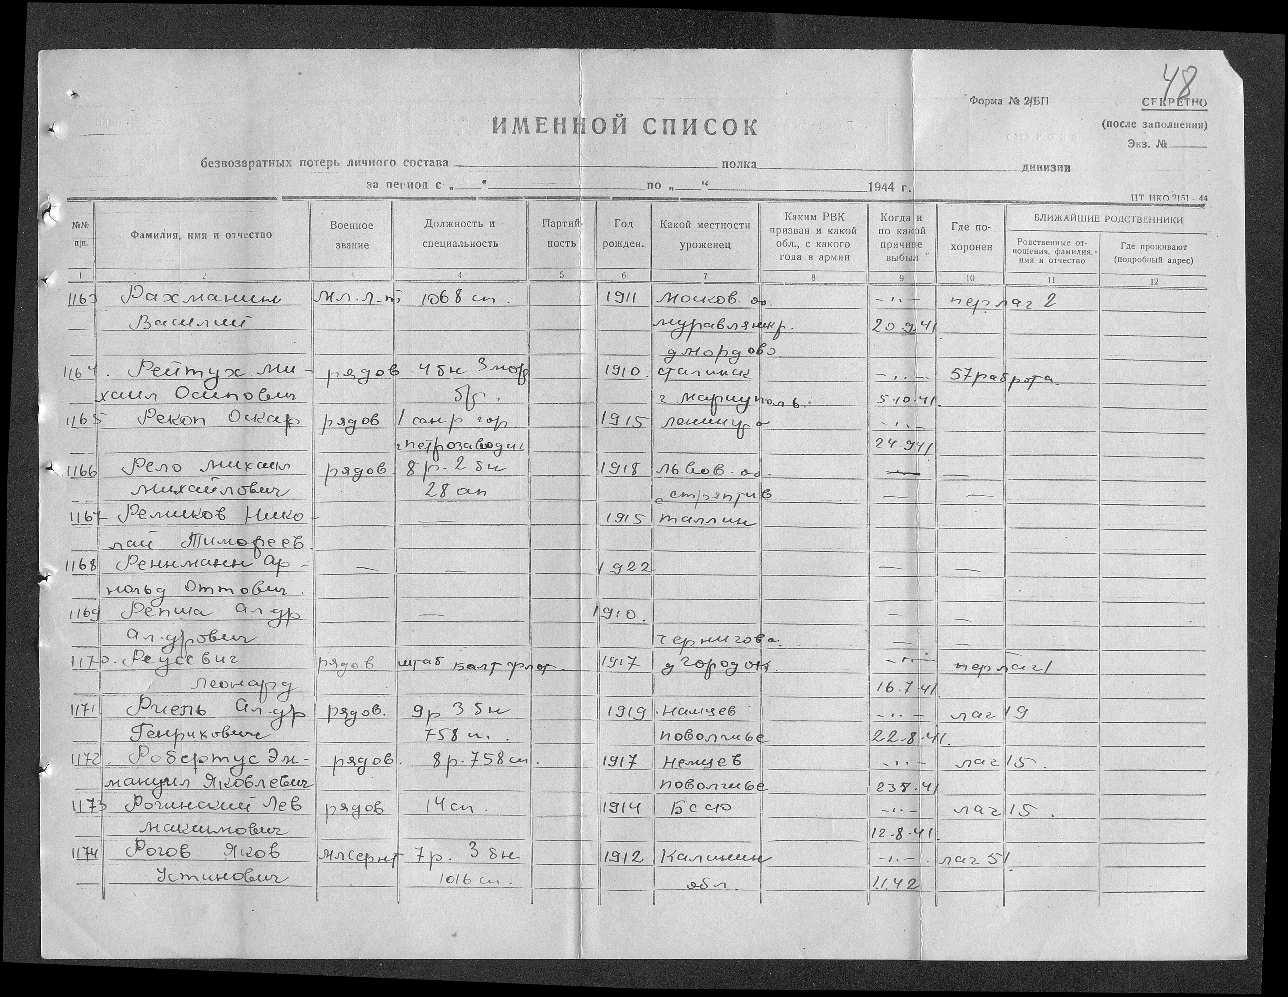 48
Форма № 2/БП
СЕКРЕТНО
(после заполнения)
Экз. №
ИМЕННОЙ СПИСОК
безвозвратных потерь личного состава полка дивизии
за период с „ “ по „ “ 1944 г.
ЦТ НКО 2151—44
№№ п/п. Фамилия, имя и отчество Военное звание Должность и специальность Партийность Год рожден. Какой местности уроженец Каким РВК призван и какой обл., с какого года в армии Когда и по какой причине выбыл Где похоронен БЛИЖАЙШИЕ РОДСТВЕННИКИ
Родственные отношения, фамилия, имя и отчество Где проживают (подробный адрес)
1 2 3 4 5 6 7 8 9 10 11 12
1163 Рахманин мл. л-т 1068 сп. 1911 москов. об. -"- пер лаг 2
Василий муравлян р. 20.9.41
д мордово
1164. Рейтух Ми- рядов 4 бн 3 мор 1910. сталинск -"- 57 раб рота.
хаил Осипович бр. г мариуполь. 5.10.41.
1165 Рекоп Оскар рядов 1 сан р гор 1915 ленингр -"-
петрозаводск 24.9.41
1166 Рело михаил рядов 8 р. 2 бн 1918 львов. об. —
михайлович 28 ап — —
1167 Реликов Нико- — 1915 таллин
лай Тимофеев.
1168 Реннманн Ар- — — 1922 — —
нольд Оттович.
1169 Репша ал-др — 1910. — —
ал-дрович чернигова. —
1170. Реусевич рядов штаб балт флот. 1917 д городок -"- пер лаг 1
леонард 16.7.41.
1171 Риель Ал-др рядов. 9р 3 бн 1919. немцев -"- лаг 19
Генрихович 758 п. поволжье 22.8.41.
1172. Робертус Эм- рядов. 8 р. 758 сп. 1917 немцев -"- лаг 15.
мануил Яковлевич поволжье 23.8.41
1173 Рогинский Лев рядов 14 сп. 1914 БССР -"- лаг 15.
максимович 12.8.41.
1174 Рогов Яков мл серж 7 р. 3 бн 1912 Калинин -"- лаг 51.
Устинович 1016 сп. обл. 1.1.42